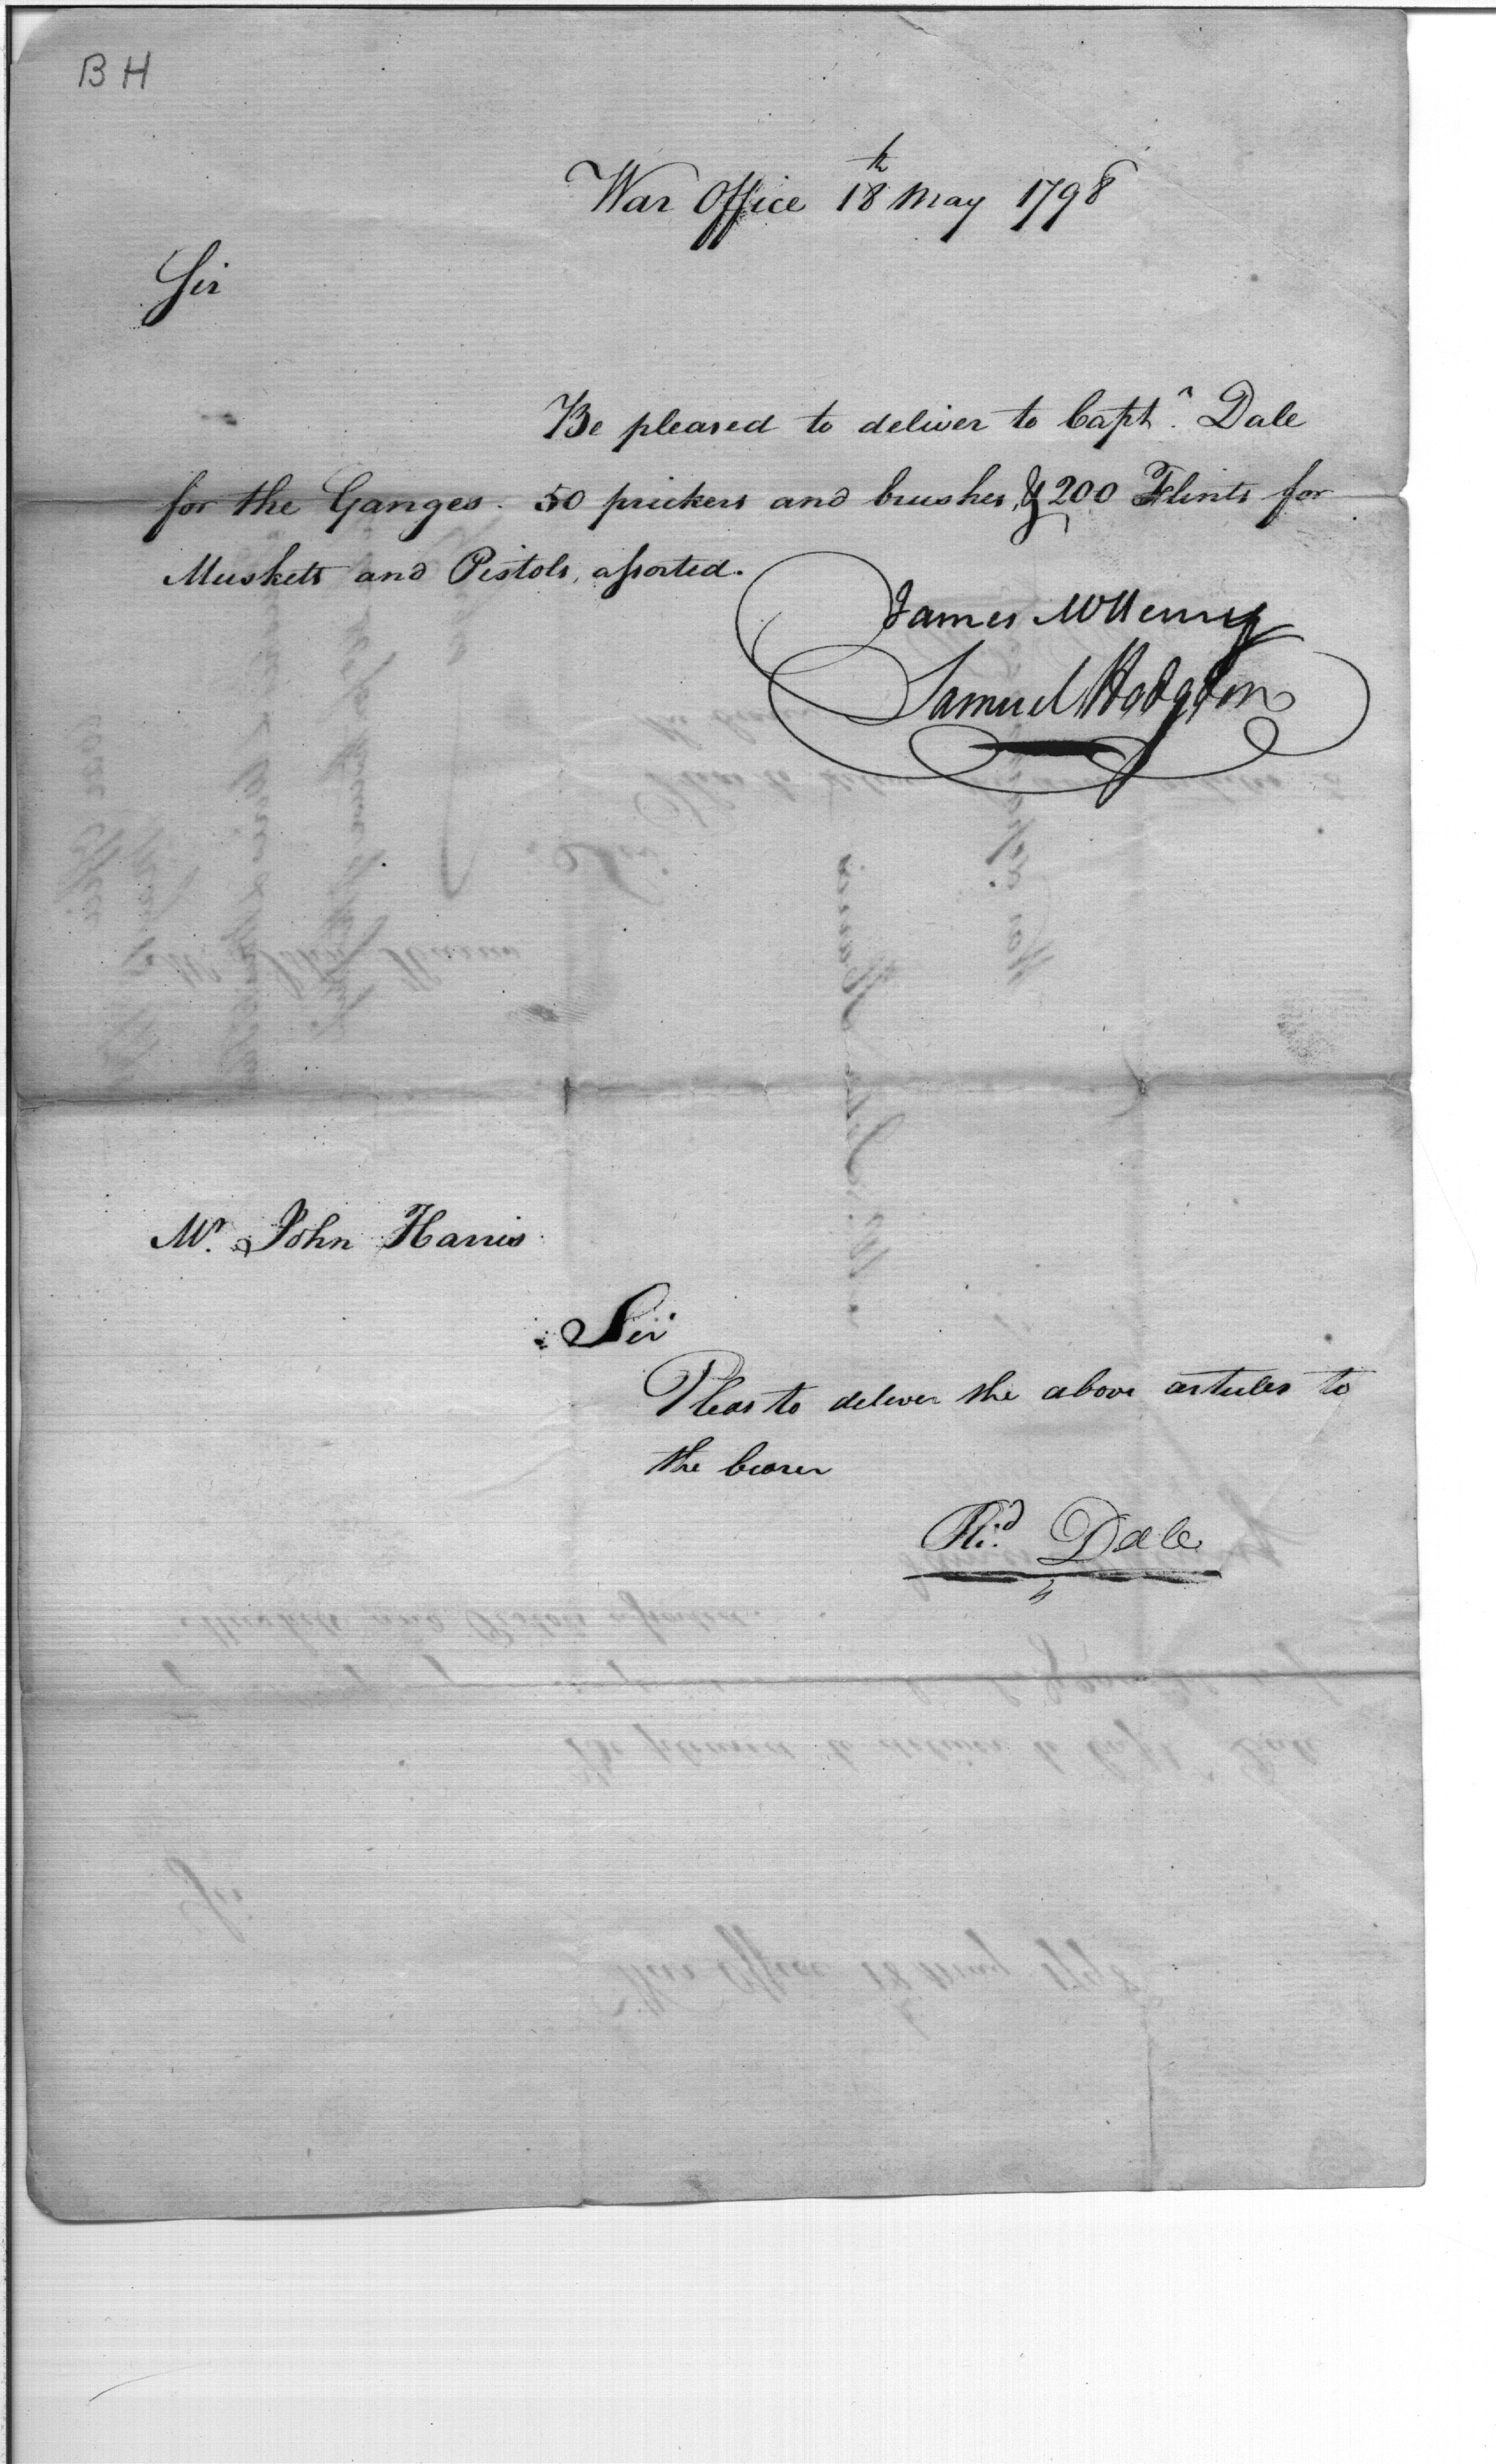 BH
War Office 18th May 1798
Sir
Be pleased to deliver to Captn. Dale
for the Ganges. 50 prickers and brushes, & 200 Flints for
Muskets and Pistols, assorted.
James McHenry
Samuel Hodgdon
Mr. John Harris
Sir
Pleas to deliver the above articles to
the bearer
Rid. Dale